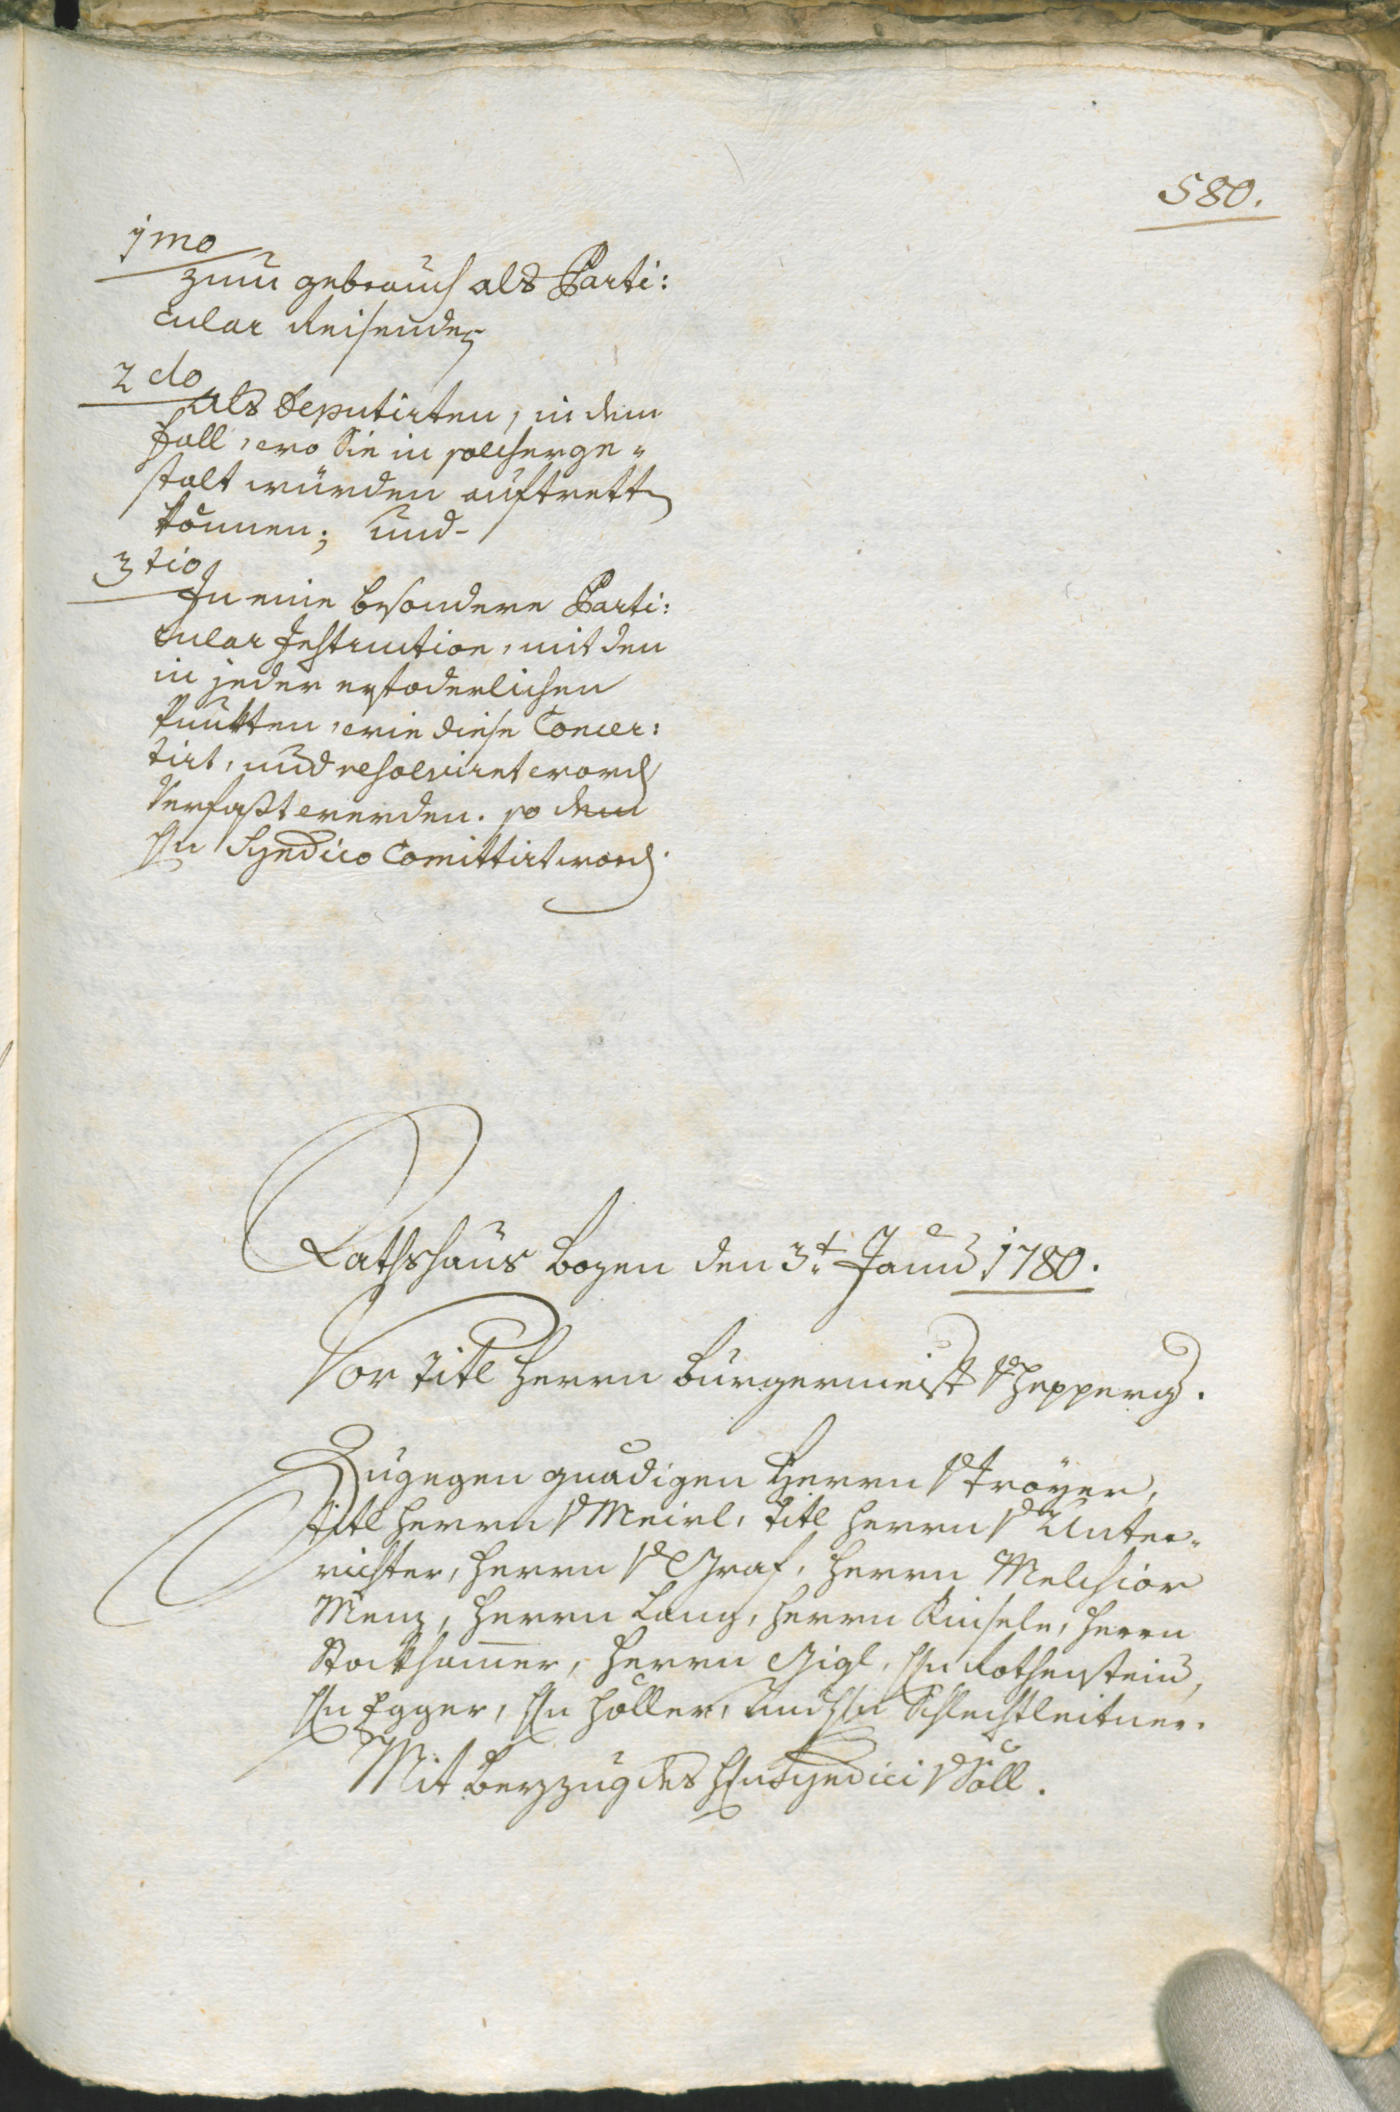 580.
1mo
zum gebrauch als Parti:
cular Reisende,
2do
Als Deputirten, in dem
fall, wo Sie in solcherge¬
stalt würden auftretten
können; und
3tio
In eine besondere Parti:
cular Instruction, mit den
in jeder erfoderlichen
Puncten, wie diese Concer:
tirt, und resolviret word
Verfaßt werden. so dem
Hn Syndico Comittirt word.
Rathshaus Bozen den 3t. Jenner 1780.
Vor Titl Herrn Burgermeister v Hepperg.
Zugegen gnädigen Herrn v Troyer,
Titl Herrn v Meirl, Titl Herrn v Unter¬
richter, Herrn v Graf, Herrn Melchior
Menz, Herrn Lang, Herrn Kinsele, Herrn
Stockhamer, Herrn Gigl, Hn Rothenstein,
Hn Egger, Hn Holler, und Hn Schlechtleitner.
Mit Beyzug des Hn Syndici v Söll.